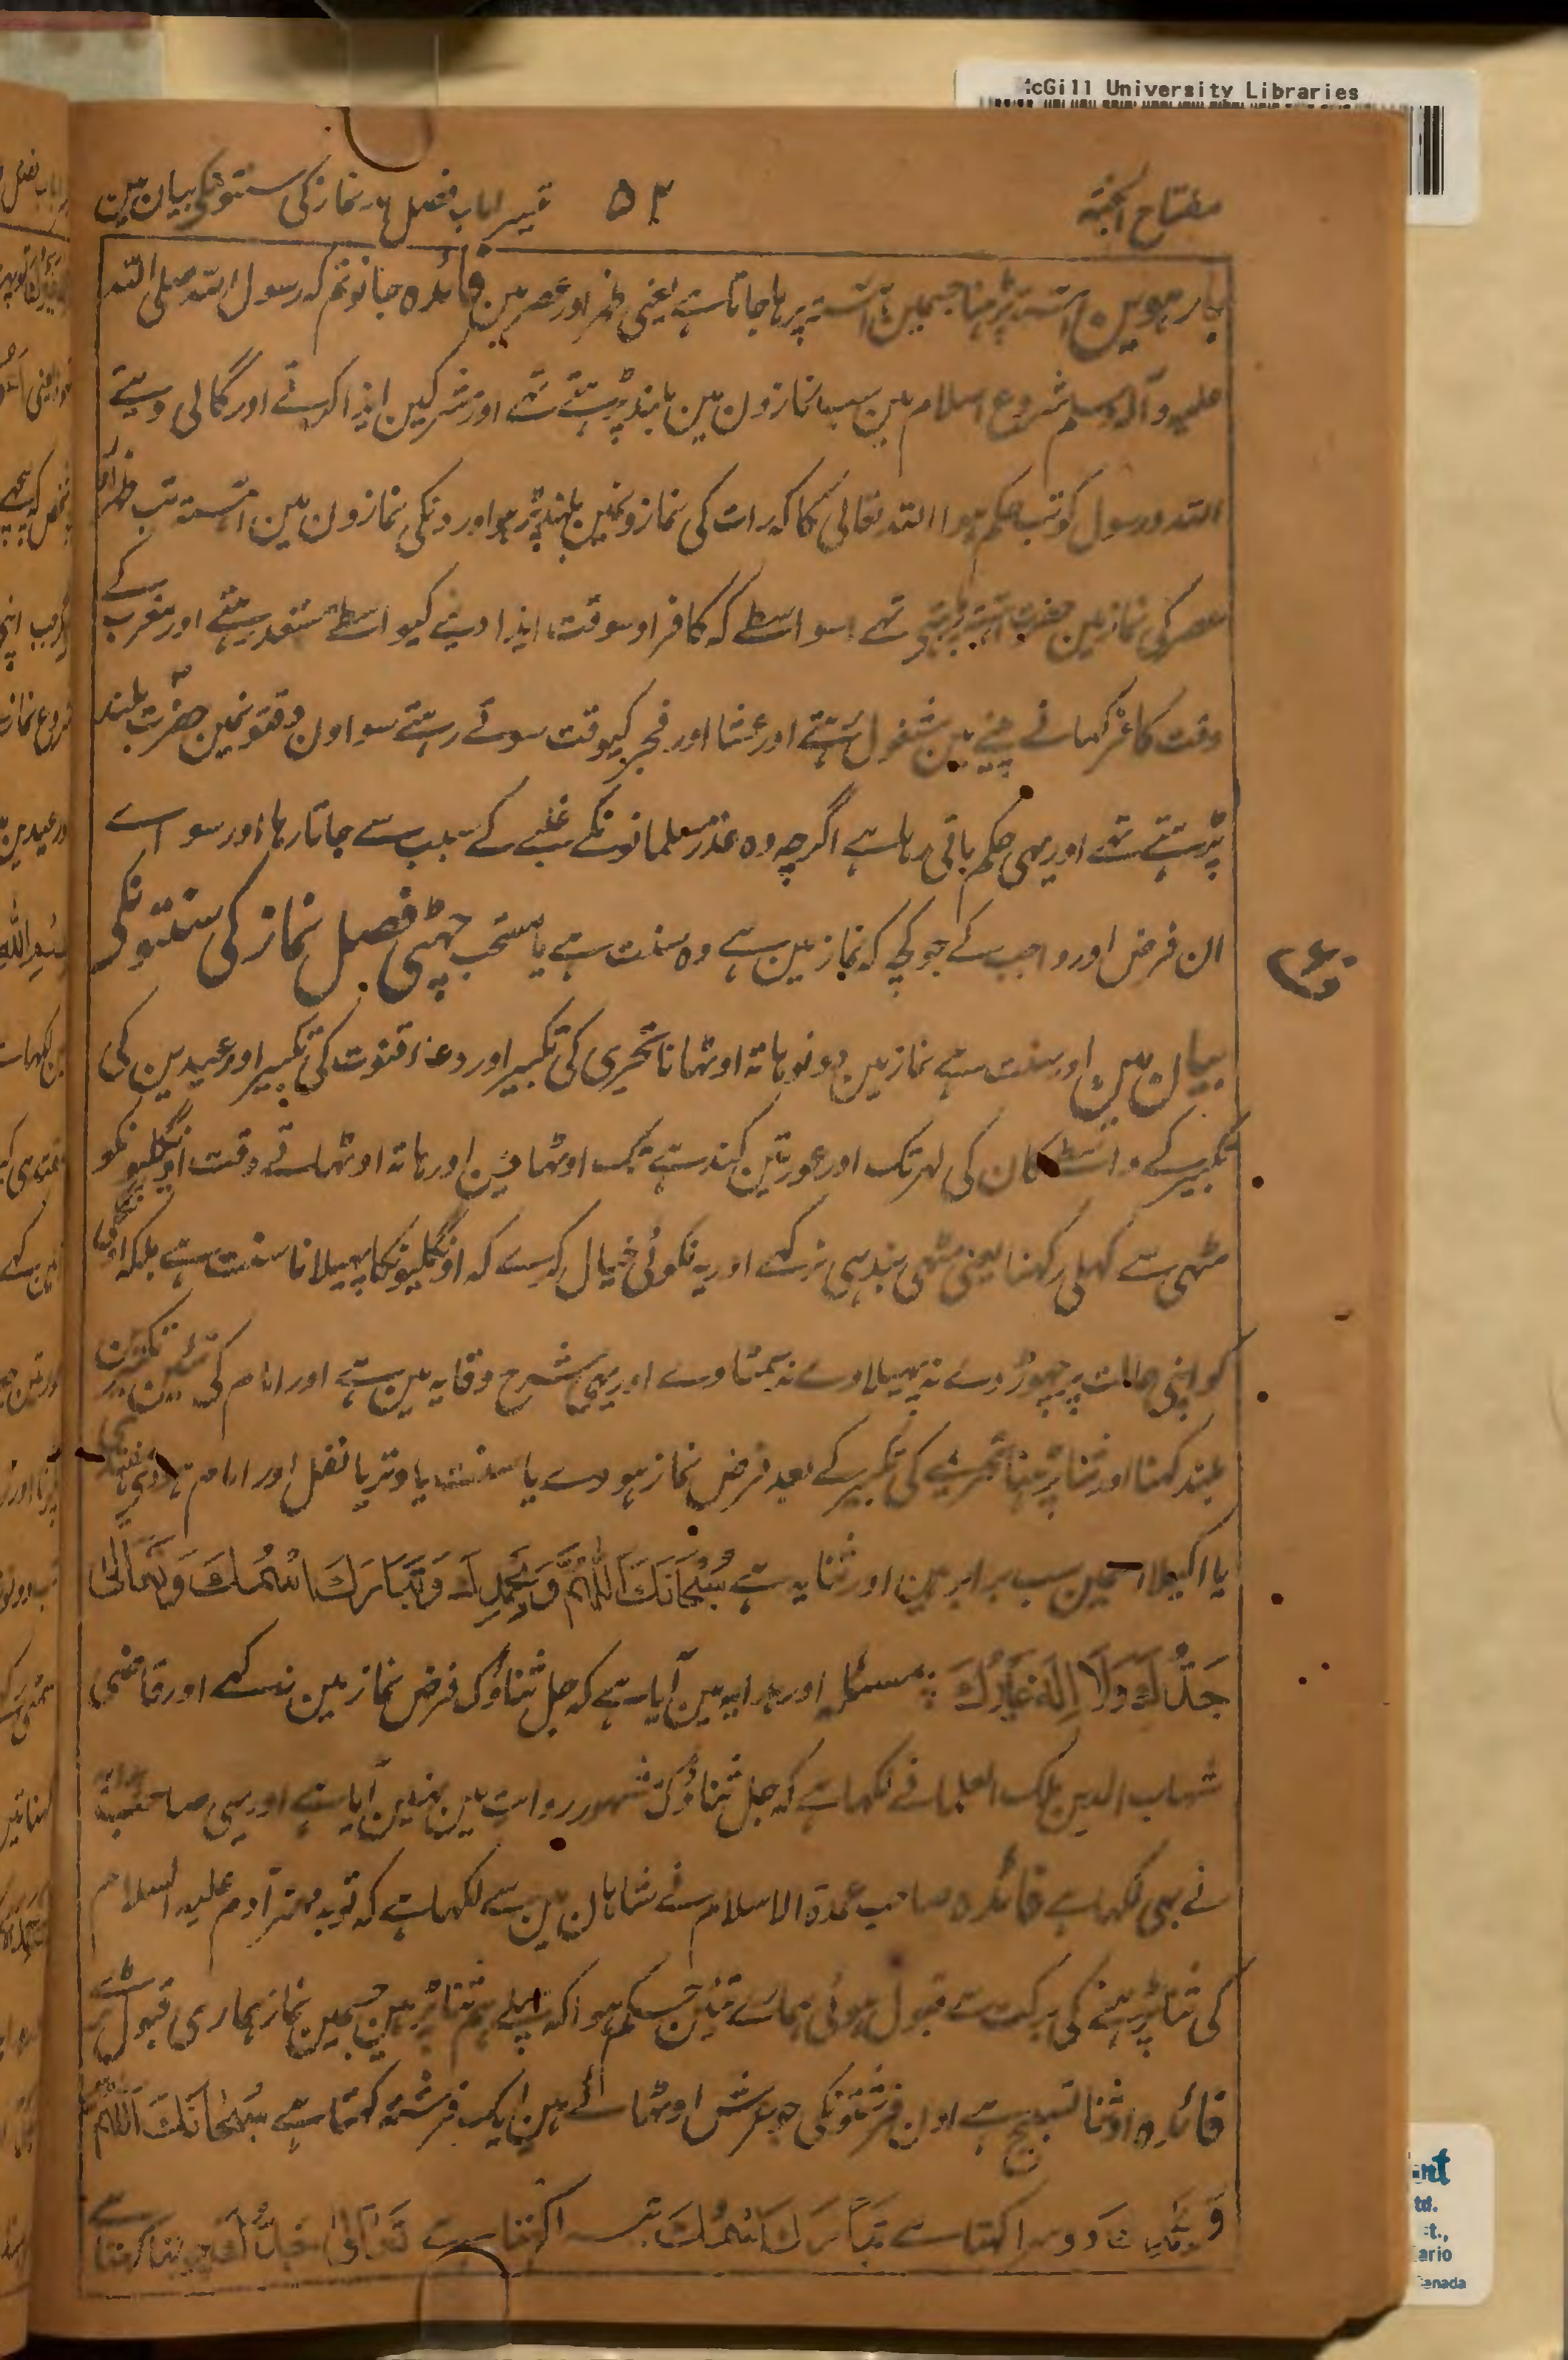 McGill University Libraries
مفتاح الجنۃ ۵۲ تیسرا باب فصل نماز کی سنتونکی بیان مین
بارہوین آہستہ پڑہنا جسمین آہستہ پڑہا جاتا ہے یعنی ظہر اور عصر مین فائدہ جانو تم کہ رسول اللہ صلی اللہ
علیہ وآلہ وسلم شروع اسلام مین سب نمازون مین بلند پڑہتے تہے اور مشرکین ایذا کرتے اور گالی دیتے
اللہ و رسول کو تب حکم ہوا اللہ تعالیٰ کا کہ رات کی نمازونمین بلند پڑہو اور دنکی نمازون مین آہستہ تب ظہر اور
عصر کی نماز مین حضرت آہستہ پڑہتے تہے اسواسطے کہ کافر اوسوقت ایذا دینے کیواسطے مستعد رہتے اور مغرب کے
وقت کافر کہانے پینے مین مشغول رہتے اور عشا اور فجر کیوقت سوتے رہتے سو اون وقتونمین حضرت بلند
پڑہتے تہے اور یہی حکم باقی رہا ہے اگرچہ وہ عذر مسلمانونکے غلبے کے سبب سے جاتا رہا اور سواے
ان فرض اور واجب کے جو کچہ کہ نماز مین ہے وہ سنت ہے یا مستحب چہٹی فصل نماز کی سنتونکی
بیان مین اور سنت ہے نماز مین دونو ہاتہ اوٹہانا تحریمی کی تکبیر اور دعاء قنوت کی تکبیر اور عیدین کی
تکبیر کے واسطے کان کی لہر تک اور عورتین کندہے تک اوٹہاوین اور ہاتہ اوٹہاتے وقت اونگلیونکو
مٹہی سے کہلی رکہنا یعنی مٹہی بندہی نرکہے اور یہ نکوئی خیال کرے کہ اونگلیونکا پہیلانا سنت ہے بلکہ اونگلیون
کو اپنی حالت پر چہوڑ دے نہ پہیلاوے نہ سمٹاوے اور یہی شرح وقایہ مین ہے اور امام کے تئین تکبیرین
بلند کہنا اور ثنا پڑہنا تحریمے کی تکبیر کے بعد فرض نماز ہووے یا سنت یا وتر یا نفل اور امام ہو یا مقتدی
یا اکیلا اسمین سب برابر ہین اور ثنا یہ ہے سُبْحَانَكَ اللّٰهُمَّ وَبِحَمْدِكَ وَتَبَارَكَ اسْمُكَ وَتَعَالٰى
جَدُّكَ وَلَا اِلٰهَ غَيْرُكَ مسئلہ اور ہدایہ مین آیا ہے کہ جل ثناؤک فرض نماز مین نہ کہے اور قاضی
شہاب الدین ملک العلما نے لکہا ہے کہ جل ثناؤک مشہور روایت مین نہین آیا ہے اور یہی صاحب
نے بہی لکہا ہے فائدہ صاحب عمدۃ الاسلام نے شاہان مین سے لکہا ہے کہ توبہ مہتر آدم علیہ السلام
کی ثنا پڑہنے کی برکت سے قبول ہوئی ہمارے تئین حکم ہوا کہ پہلے ہم ثنا پڑہین جسمین نماز ہماری قبول
فائدہ اور ثنا تسبیح ہے اون فرشتونکی جو عرش اوٹہائے ہین ایک فرشتہ کہتا ہے سُبْحَانَكَ اللّٰهُمَّ
وَبِحَمْدِكَ دوسرا کہتا ہے تَبَارَكَ اسْمُكَ تیسرا کہتا ہے تَعَالٰى جَدُّكَ چوتہا کہتا ہے